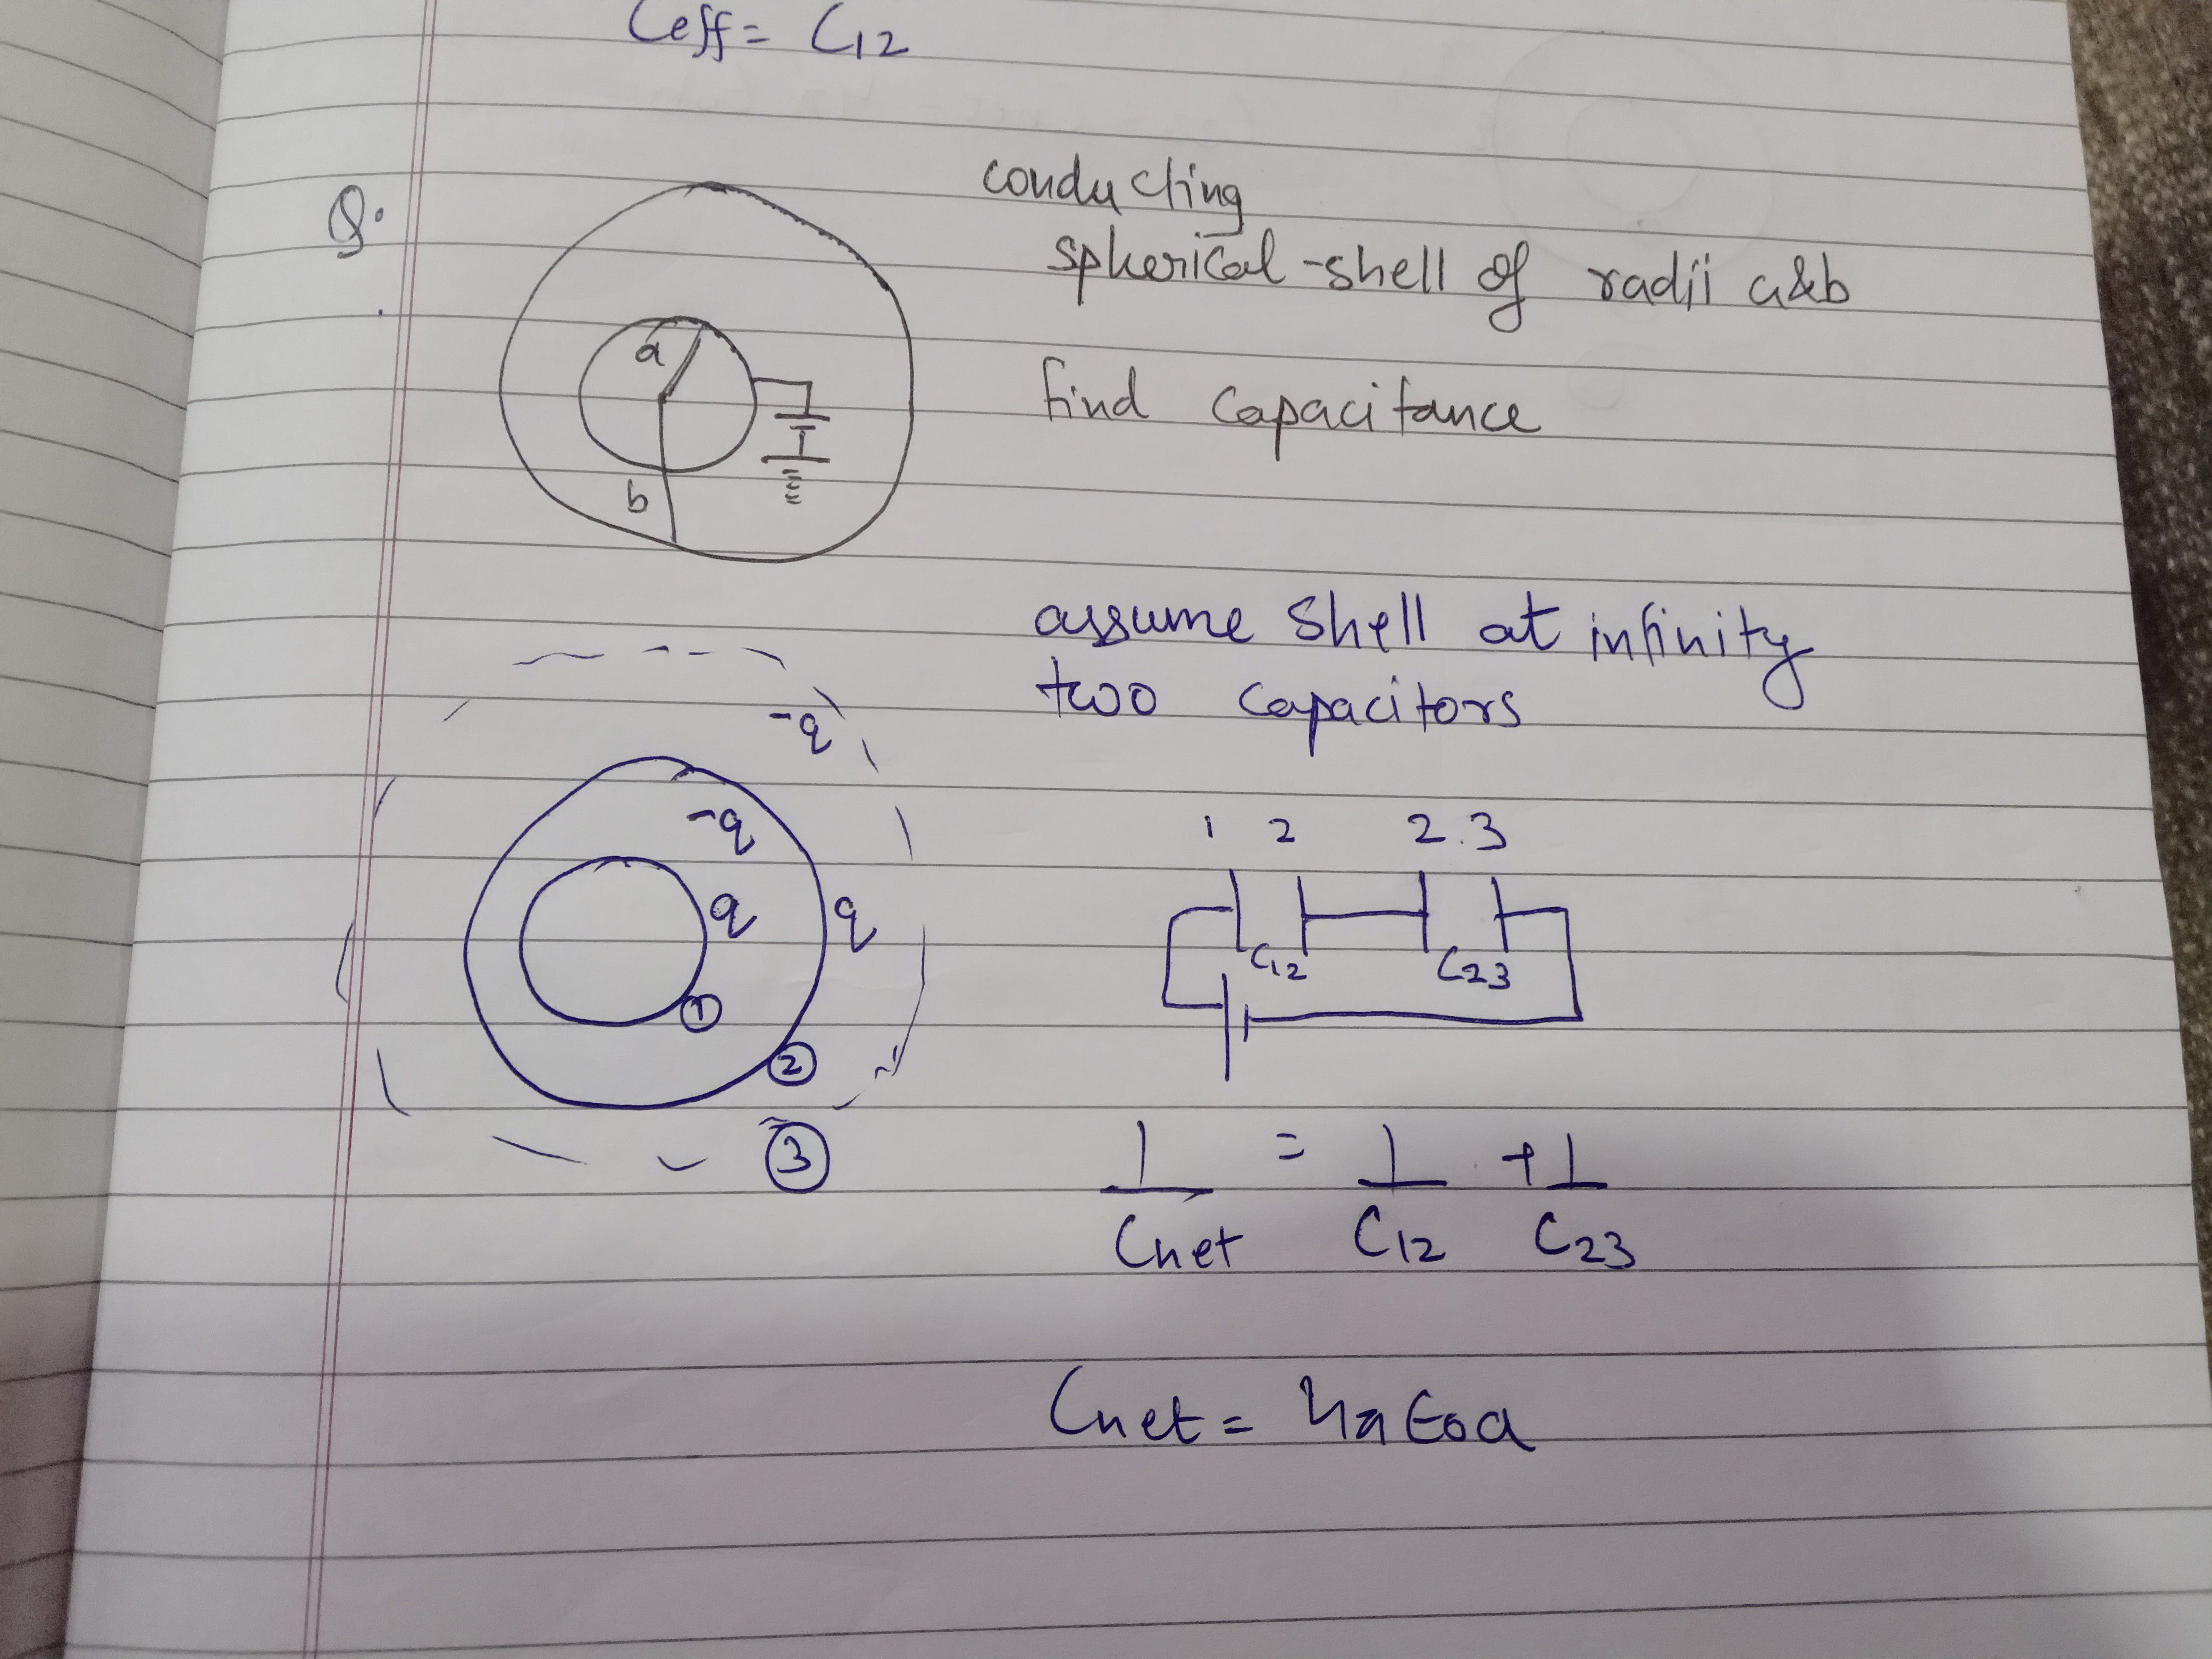 Ceff = C12
Q.
conducting
spherical-shell of radii a&b
a
find capacitance
b
assume shell at infinity
two capacitors
-q
-q
1 2 2.3
q q
C12 C23
1
2
3
1/Cnet = 1/C12 + 1/C23
Cnet = 4π ε0a